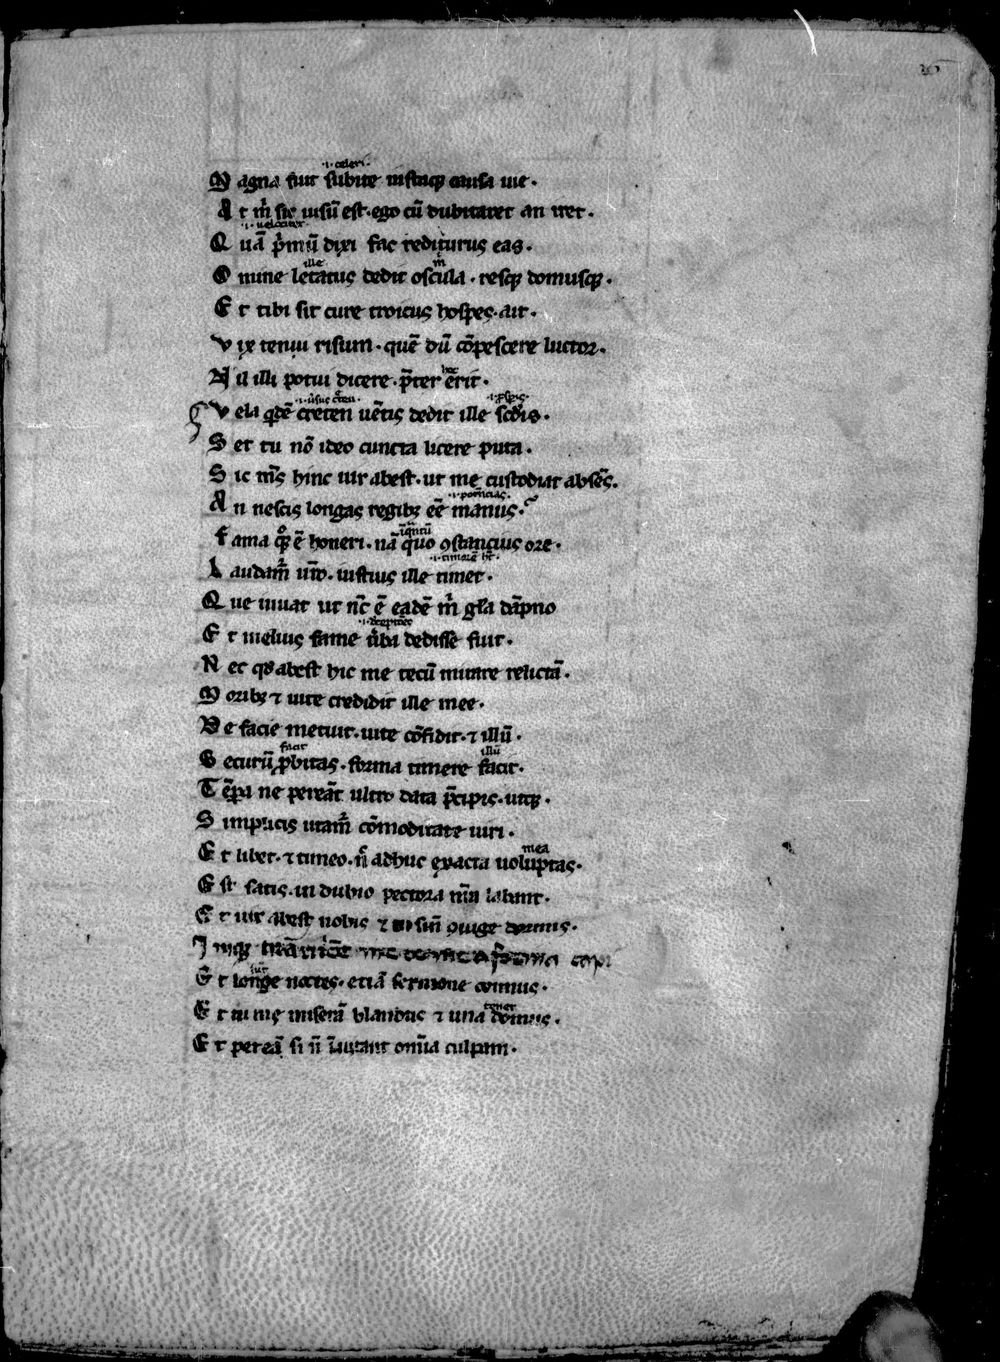 .i. celeri.
M agna fuit subite iustaqꝫ causa uie.
A t m̍ sic uisũ est. ego cũ dubitaret an iret.
.i. uelociter
Q uã p̍mũ dixi fac rediturus eas.
ille m̍
O mine letatus dedit oscula. resqꝫ domusqꝫ.
E t tibi sit cure troicus hospes. ait.
V ix tenui risum. quẽ dũ cõpescere luctor.
hoc
N il illi potui dicere. p̃ter erit.
V ela qͥdẽ creten uẽtis dedit ille scd̃is.
S et tu nõ ideo cuncta licere puta.
S ic mẽs hinc uir abest. ut me custodiat absẽs.
A n nescis longas regibꝫ eẽ manus.
F ama qͦꝫ ẽ honeri. nã quo ꝯstancius ore.
.i. timorẽ hꝫ.
L audam̃ ur̃o. iustius ille timet.
Q ue iuuat ut nc̃ ẽ eadẽ m̍ gl̃a dãpno
E t melius fame u̍ba dedisse fuit.
N ec qđ abest hic me tecũ mirare relictã.
M oribꝫ ⁊ uite credidit ille mee.
D e facie metuit. uite cõfidit. ⁊ illũ.
facit illũ
S ecurũ p̱bitas. forma timere facit.
T ẽpa ne pereãt ultro data p̃cipis. utqꝫ.
S implicis utam̃ cõmoditate uiri.
mea
E t libet. ⁊ timeo. ñ adhuc exacta uoluptas.
E st satis. in dubio pectora nr̃a labant.
E t uir abest nobis ⁊ sin̄ ꝯiuge dormis.
I nqꝫ
E t longe noctes. etiã sermone coimus.
E t tu me miserã blandus ⁊ una domus.
E t pereã si ñ ĩuitant omĩa culpam.